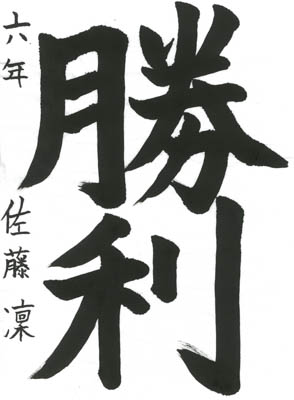 勝利
六年 佐藤凜